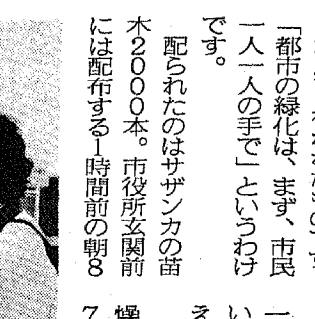 「都市の緑化は、まず、市民
一人一人の手で」というわけ
です。
配られたのはサザンカの苗
木2000本。市役所玄関前
には配布する1時間前の朝8